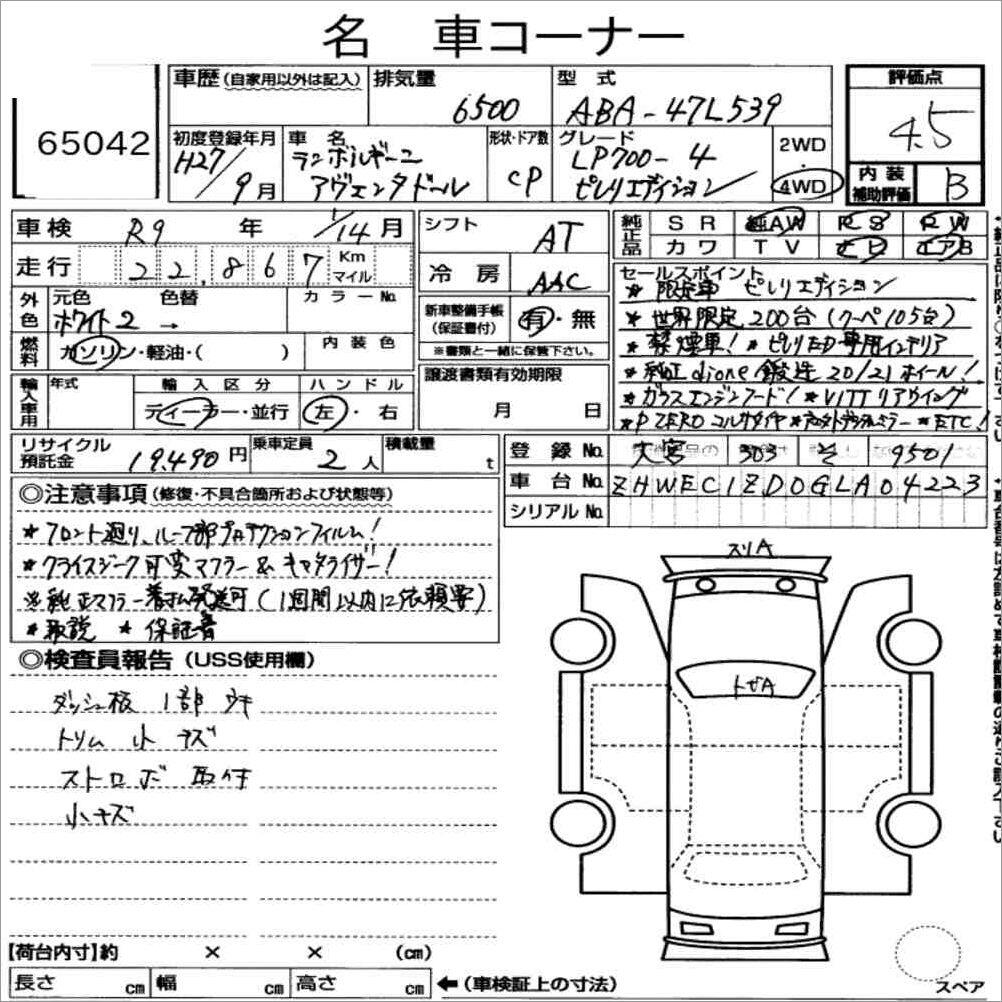 名 車コーナー
65042
車歴(自家用以外は記入) 排気量 6500 型式 ABA-47L539
評価点 4.5
初度登録年月 H27/9月 車名 ランボルギーニ アヴェンタドール 形状・ドア数 CP グレード LP700-4 ピレリエディション 2WD 4WD
内装補助評価 B
車検 R9年 1/14月
シフト AT
純正品 SR 純AW PS PW
カワ TV ナビ エアB
走行 22,867 Km マイル
冷房 AAC
セールスポイント
* 限定車 ピレリエディション
* 世界限定200台(クーペ105台)
* 禁煙車! * ピレリED専用インテリア
* 純正dione鍛造20/21ホイール!
* ガラスエンジンフード!
* ETC!
外色 元色 ホワイト2 色替 → カラーNo.
新車整備手帳(保証書付) 有・無
※書類と一緒に保管下さい。
燃料 ガソリン・軽油・( ) 内装色
輸入車用 年式 輸入区分 ディーラー・並行 ハンドル 左・右
譲渡書類有効期限 月 日
リサイクル預託金 19,490円 乗車定員 2人 積載量 t
登録No. 大宮 303 そ 9501
車台No. ZHWEC1ZD0GLA04223
シリアルNo.
◎注意事項(修復・不具合箇所および状態等)
* フロント廻り、ルーフ部プロテクションフィルム!
* クライスジーク可変マフラー&キャタライザー!
※純正マフラー着払発送可(1週間以内に依頼要)
* 取説 * 保証書
◎検査員報告(USS使用欄)
ダッシュ板 1部ウキ
トリム小キズ
ストロボ取付
小キズ
スリA
トビA
【荷台内寸】約 × × (cm)
長さ cm 幅 cm 高さ cm ←(車検証上の寸法)
スペア